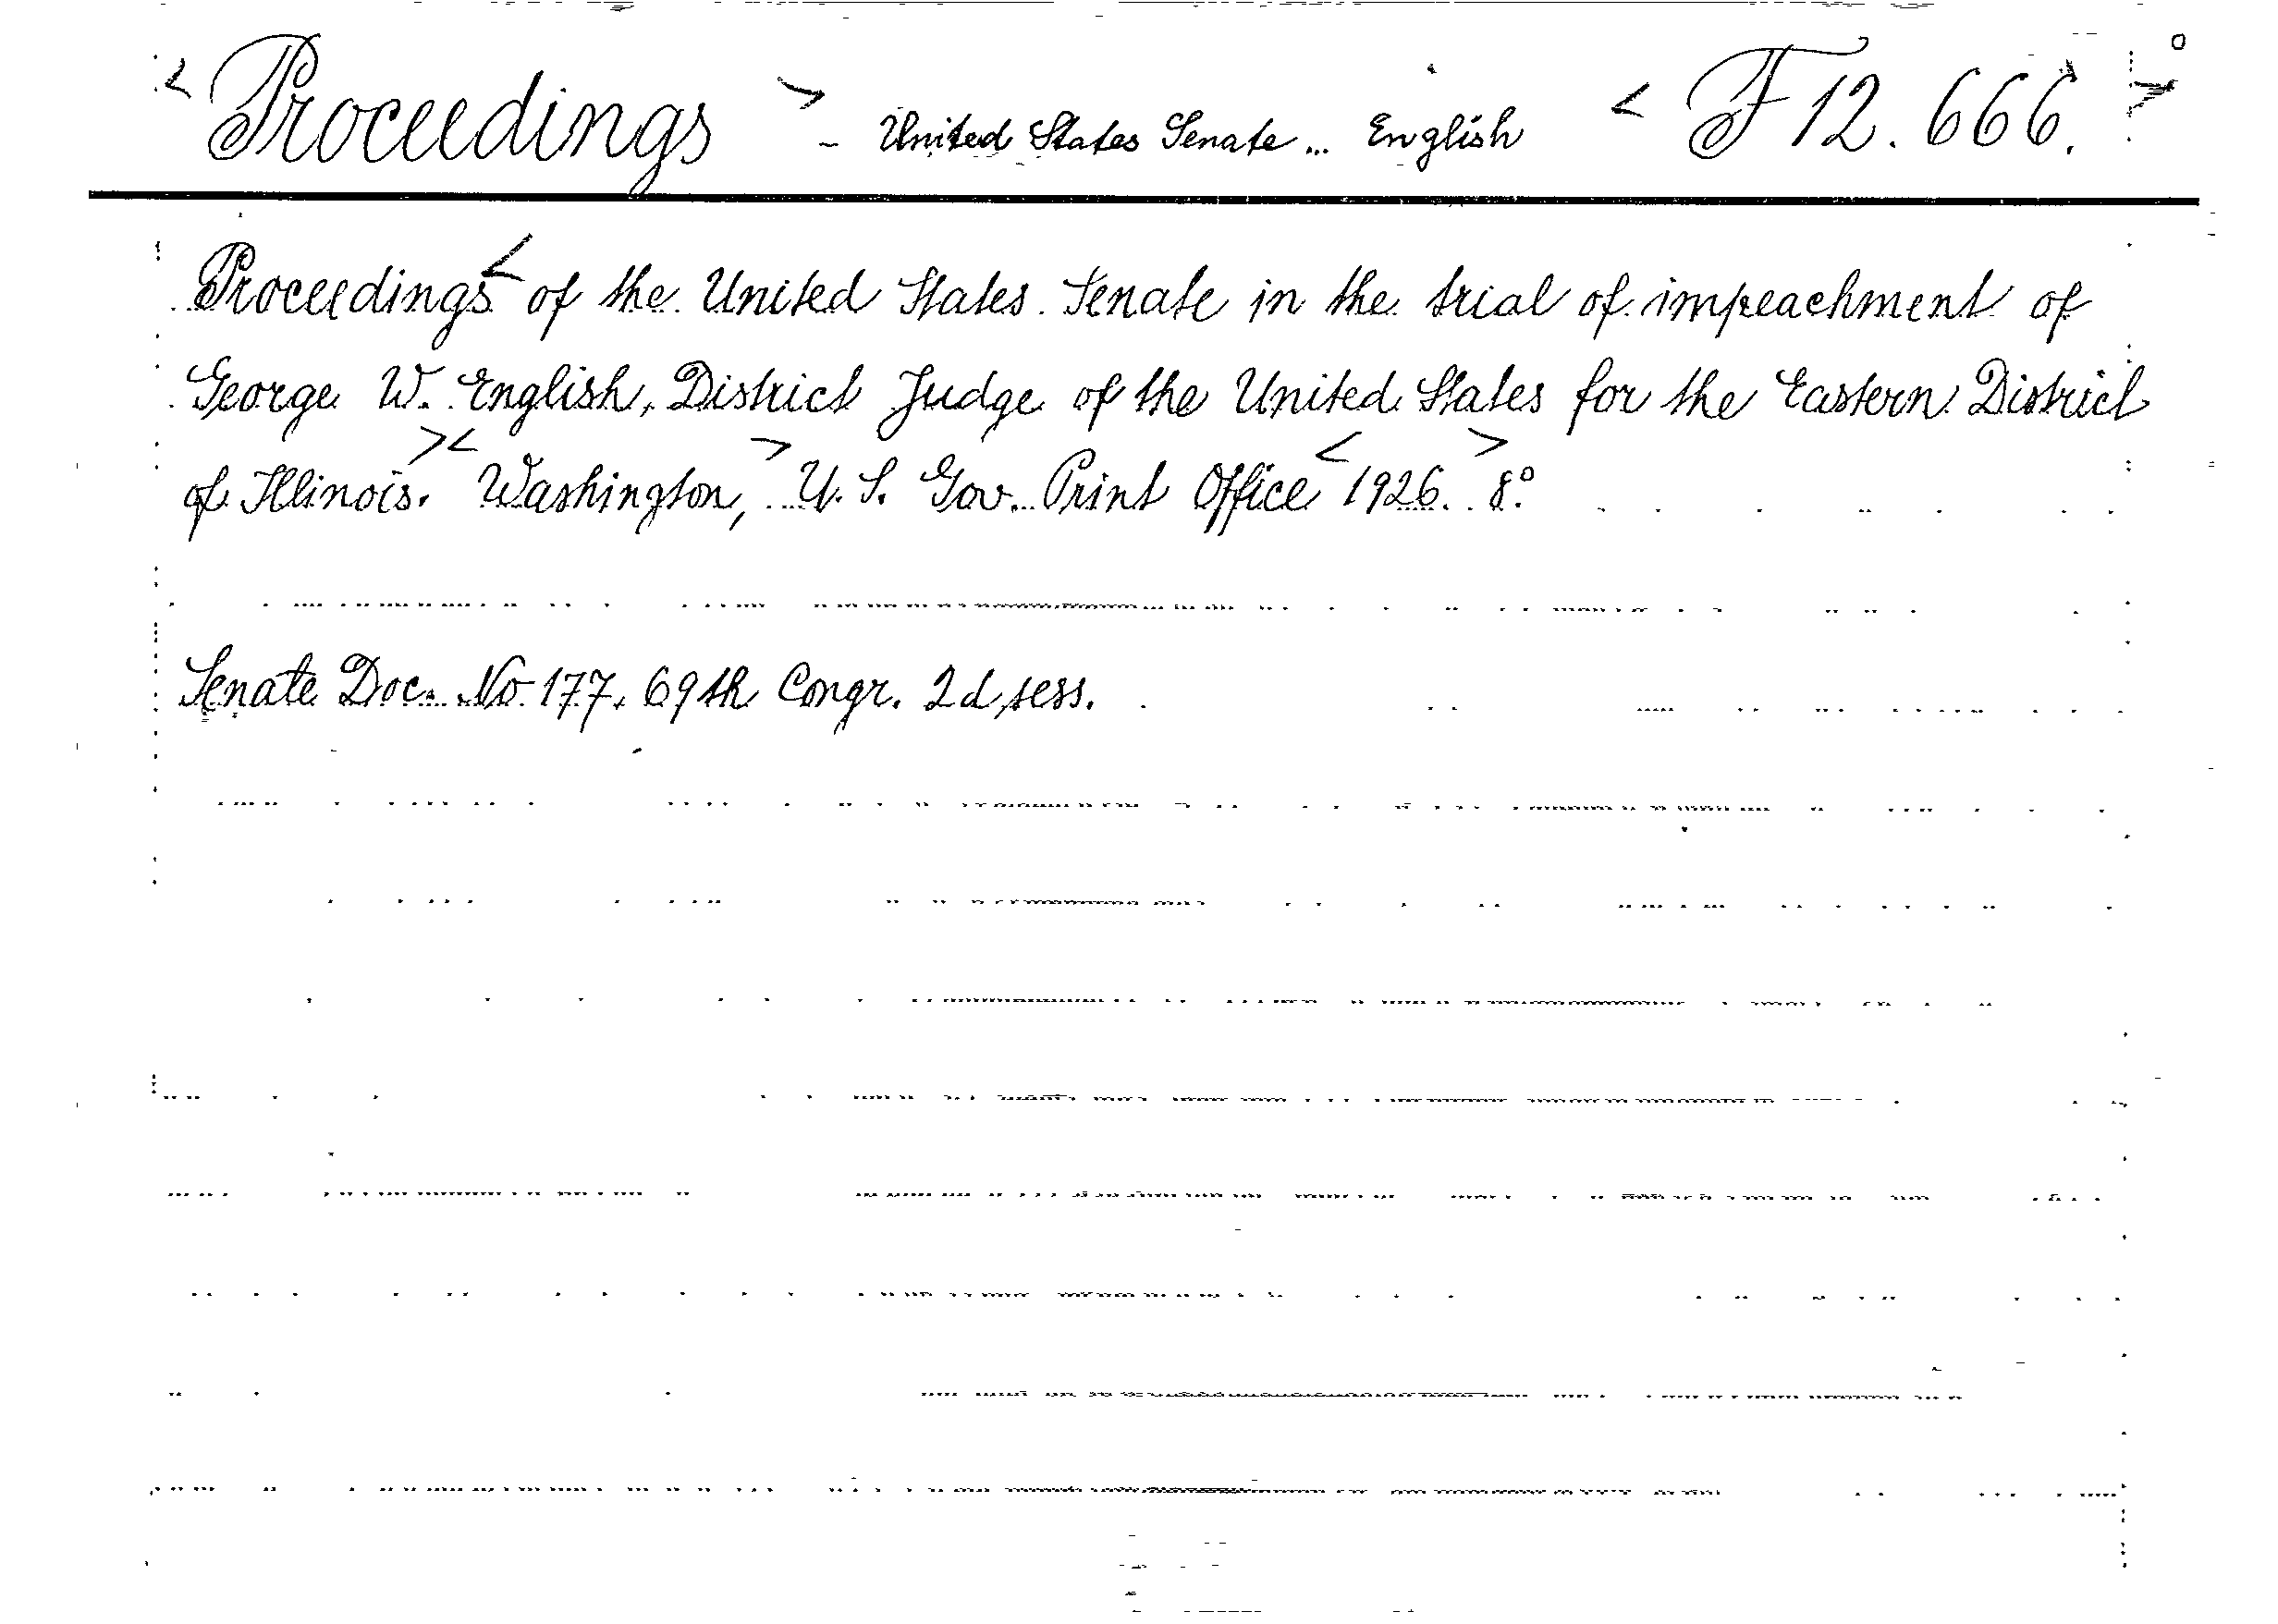 < Proceedings > - United States Senate ... English < F 12.666. >
Proceedings < of the United States Senate in the trial of impeachment of
George W. English, District Judge of the United States for the Eastern District
of Illinois. >< Washington, > U. S. Gov. Print Office < 1926. > 8°
Senate Doc. No 177. 69th Congr. 2d sess.